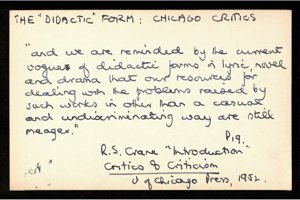 THE "DIDACTIC" FORM: CHICAGO CRITICS
"and we are reminded by the current
vogues of didactic forms in lyric, novel
and drama that our resources for
dealing with the problems raised by
such works in other than a casual
and undiscriminating way are still
meager."
P. 19.
R.S. Crane "Introduction"
Critics & Criticism
U of Chicago Press, 1952.